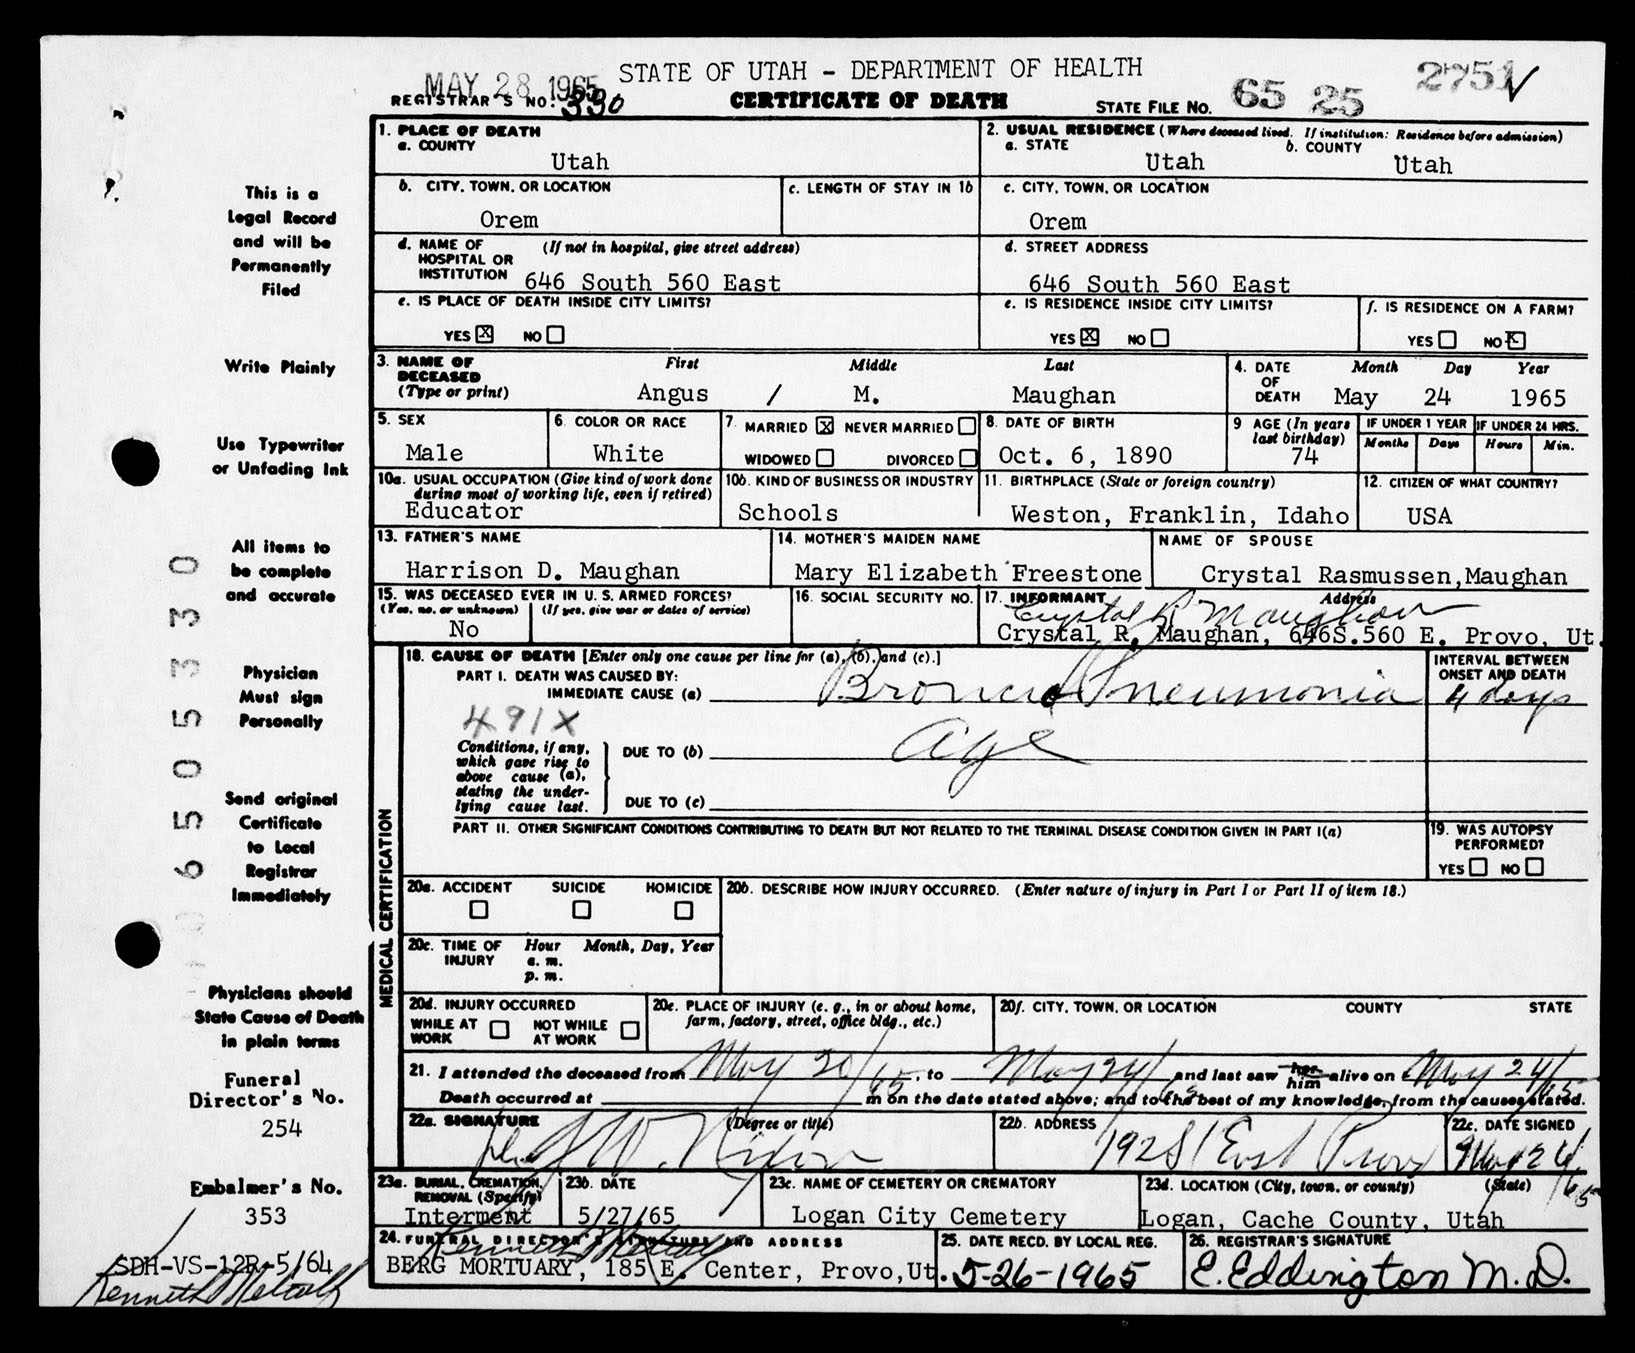 MAY 28 1965
STATE OF UTAH - DEPARTMENT OF HEALTH
REGISTRAR'S NO. 330
CERTIFICATE OF DEATH
STATE FILE NO. 65 25 2751 ✓
This is a
Legal Record
and will be
Permanently
Filed
Write Plainly
Use Typewriter
or Unfading Ink
All items to
be complete
and accurate
Physician
Must sign
Personally
Send original
Certificate
to Local
Registrar
Immediately
Physicians should
State Cause of Death
in plain terms
Funeral
Director's No.
254
Embalmer's No.
353
SDH-VS-12R-5/64
Kenneth Metcalf
650533 0
1. PLACE OF DEATH
a. COUNTY
Utah
2. USUAL RESIDENCE (Where deceased lived. If institution: Residence before admission)
a. STATE
Utah
b. COUNTY
Utah
b. CITY, TOWN, OR LOCATION
Orem
c. LENGTH OF STAY IN 1b
c. CITY, TOWN, OR LOCATION
Orem
d. NAME OF (If not in hospital, give street address)
HOSPITAL OR
INSTITUTION 646 South 560 East
d. STREET ADDRESS
646 South 560 East
e. IS PLACE OF DEATH INSIDE CITY LIMITS?
YES X NO
e. IS RESIDENCE INSIDE CITY LIMITS?
YES X NO
f. IS RESIDENCE ON A FARM?
YES NO X
3. NAME OF First Middle Last
DECEASED
(Type or print) Angus / M. Maughan
4. DATE Month Day Year
OF
DEATH May 24 1965
5. SEX
Male
6. COLOR OR RACE
White
7. MARRIED X NEVER MARRIED
WIDOWED DIVORCED
8. DATE OF BIRTH
Oct. 6, 1890
9 AGE (In years
last birthday)
74
IF UNDER 1 YEAR
Months Days
IF UNDER 24 HRS.
Hours Min.
10a. USUAL OCCUPATION (Give kind of work done
during most of working life, even if retired)
Educator
10b. KIND OF BUSINESS OR INDUSTRY
Schools
11. BIRTHPLACE (State or foreign country)
Weston, Franklin, Idaho
12. CITIZEN OF WHAT COUNTRY?
USA
13. FATHER'S NAME
Harrison D. Maughan
14. MOTHER'S MAIDEN NAME
Mary Elizabeth Freestone
NAME OF SPOUSE
Crystal Rasmussen,Maughan
15. WAS DECEASED EVER IN U.S. ARMED FORCES?
(Yes, no, or unknown) (If yes, give war or dates of service)
No
16. SOCIAL SECURITY NO.
17. INFORMANT Address
Crystal R Maughan
Crystal R. Maughan, 646S.560 E. Provo, Ut.
MEDICAL CERTIFICATION
18. CAUSE OF DEATH [Enter only one cause per line for (a), (b), and (c).]
PART I. DEATH WAS CAUSED BY:
IMMEDIATE CAUSE (a) Broncho Pneumonia
INTERVAL BETWEEN
ONSET AND DEATH
4 days
491X
Conditions, if any,
which gave rise to
above cause (a),
stating the under-
lying cause last.
DUE TO (b) Age
DUE TO (c)
PART II. OTHER SIGNIFICANT CONDITIONS CONTRIBUTING TO DEATH BUT NOT RELATED TO THE TERMINAL DISEASE CONDITION GIVEN IN PART I(a)
19. WAS AUTOPSY
PERFORMED?
YES NO
20a. ACCIDENT SUICIDE HOMICIDE
20b. DESCRIBE HOW INJURY OCCURRED. (Enter nature of injury in Part I or Part II of item 18.)
20c. TIME OF Hour Month, Day, Year
INJURY a. m.
p. m.
20d. INJURY OCCURRED
WHILE AT WORK NOT WHILE AT WORK
20e. PLACE OF INJURY (e. g., in or about home,
farm, factory, street, office bldg., etc.)
20f. CITY, TOWN, OR LOCATION COUNTY STATE
21. I attended the deceased from May 20/65, to May 24/65 and last saw her him alive on May 24/65
Death occurred at m on the date stated above; and to the best of my knowledge, from the causes stated.
22a. SIGNATURE (Degree or title)
W. Nixon
22b. ADDRESS
192 S 1 East Provo
22c. DATE SIGNED
May 24/65
23a. BURIAL, CREMATION,
REMOVAL (Specify)
Interment
23b. DATE
5/27/65
23c. NAME OF CEMETERY OR CREMATORY
Logan City Cemetery
23d. LOCATION (City, town, or county) (State)
Logan, Cache County, Utah
24. FUNERAL DIRECTOR'S SIGNATURE AND ADDRESS
Kenneth Metcalf
BERG MORTUARY, 185 E. Center, Provo,Ut.
25. DATE RECD. BY LOCAL REG.
5-26-1965
26. REGISTRAR'S SIGNATURE
E. Eddington M.D.